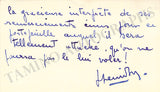 la gracieuse interprète de ses
remerciements émus, pour ce
portefeuille auquel il sera
tellement attaché qu'on ne
pourra pas le lui voler !